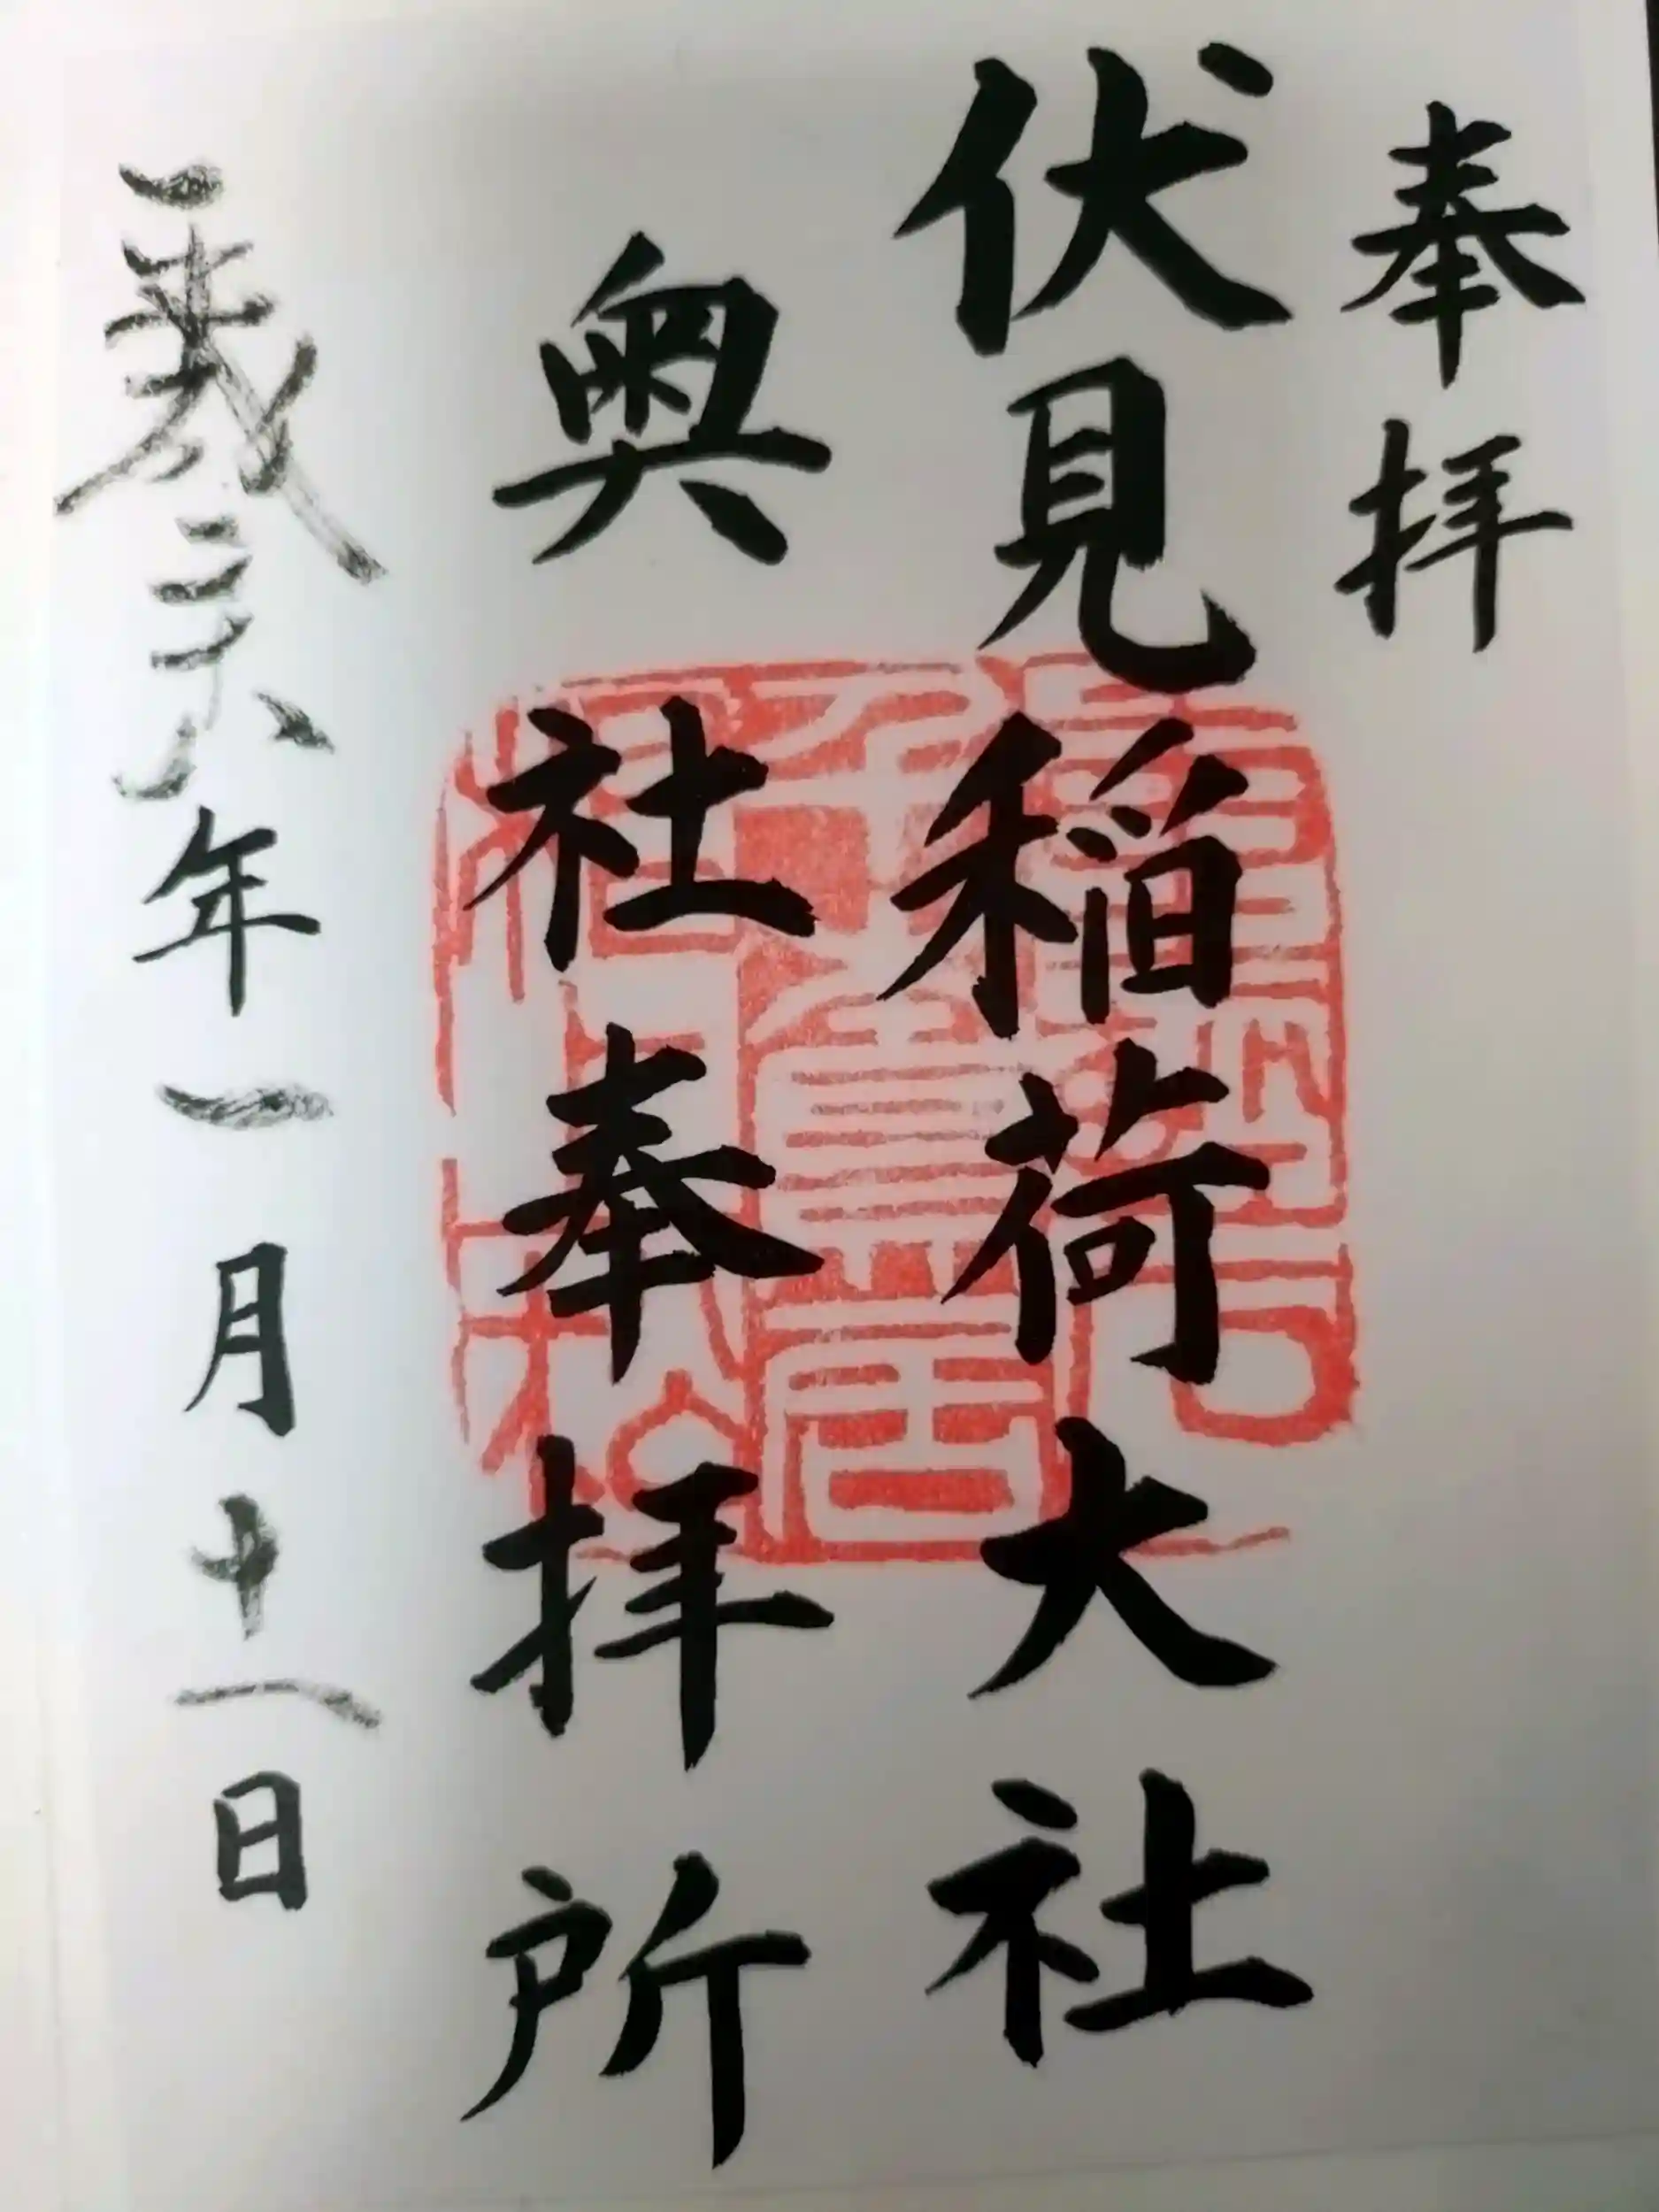 奉拝
伏見稲荷大社
奥社奉拝所
平成二十八年一月十一日